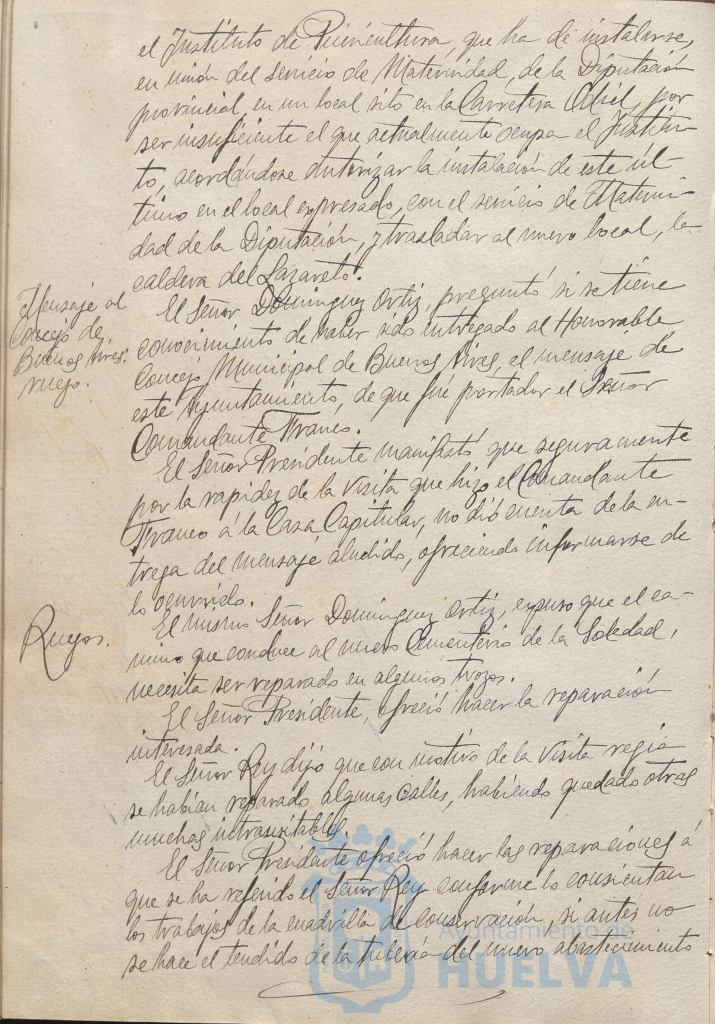 el Instituto de Puericultura, que ha de instalarse,
en unión del servicio de Maternidad, de la Diputación
provincial, en un local sito en la Carretera Odiel, por
ser insuficiente el que actualmente ocupa el Institu-
to, acordándose autorizar la instalación de este úl-
timo en el local expresado, con el servicio de Materni-
dad de la Diputación, y trasladar al nuevo local, la
caldera del Lazareto.
Mensaje al
Concejo de
Buenos Aires.
ruego.
El Señor Dominguez Ortiz, preguntó si se tiene
conocimiento de haber sido entregado al Honorable
Concejo Municipal de Buenos Aires, el mensaje de
este Ayuntamiento, de que fué portador el Señor
Comandante Franco.
El Señor Presidente manifestó que seguramente
por la rapidez de la visita que hizo el Comandante
Franco á la Casa Capitular, no dió cuenta de la en-
trega del mensaje aludido, ofreciendo informarse de
lo ocurrido.
Ruegos.
El mismo Señor Dominguez Ortiz, expuso que el ca-
mino que conduce al nuevo Cementerio de la Soledad,
necesita ser reparado en algunos trozos.
El Señor Presidente, ofreció hacer la reparación
interesada.
El Señor Rey dijó que con motivo de la visita regia
se habían reparado algunas calles, habiendo quedado otras
muchas intransitables.
El Señor Presidente ofreció hacer las reparaciones á
que se ha referido el Señor Rey conforme lo consientan
los trabajos de la cuadrilla de conservación, si antes no
se hace el tendido de la tubería del nuevo abastecimiento
Ayuntamiento de
HUELVA